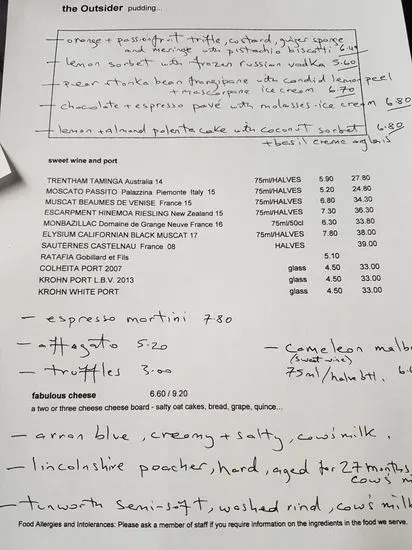 the Outsider pudding...
- orange + passionfruit trifle, custard, ginger sponge
and meringe with pistachio biscotti 6.40
- lemon sorbet with frozen russian vodka 5.60
- pear + tonka bean frangipane with candid lemon peel
+ mascarpone ice cream 6.70
- chocolate + espresso pavé with molasses ice cream 6.80
- lemon + almond polenta cake with coconut sorbet 6.80
+ basil creme anglais
sweet wine and port
TRENTHAM TAMINGA Australia 14 75ml/HALVES 5.90 27.80
MOSCATO PASSITO Palazzina Piemonte Italy 15 75ml/HALVES 5.20 24.80
MUSCAT BEAUMES DE VENISE France 15 75ml/HALVES 6.80 34.30
ESCARPMENT HINEMOA RIESLING New Zealand 15 75ml/HALVES 7.30 36.30
MONBAZILLAC Domaine de Grange Neuve France 16 75ml/50cl 6.30 33.80
ELYSIUM CALIFORNIAN BLACK MUSCAT 17 75ml/HALVES 7.80 38.00
SAUTERNES CASTELNAU France 08 HALVES 39.00
RATAFIA Gobillard et Fils 5.10
COLHEITA PORT 2007 glass 4.50 33.00
KROHN PORT L.B.V. 2013 glass 4.50 33.00
KROHN WHITE PORT glass 4.50 33.00
- espresso martini 7.80
- affogato 5.20
- truffles 3.00
- Cameleon malb
(sweet wine)
75ml/halve btl. 6.
fabulous cheese 6.60 / 9.20
a two or three cheese cheese board - salty oat cakes, bread, grape, quince...
- arran blue, creamy + salty, cow's milk.
- lincolnshire poacher, hard, aged for 27 months,
cow's m
- tunworth semi-soft, washed rind, cow's milk
Food Allergies and Intolerances: Please ask a member of staff if you require information on the ingredients in the food we serve.